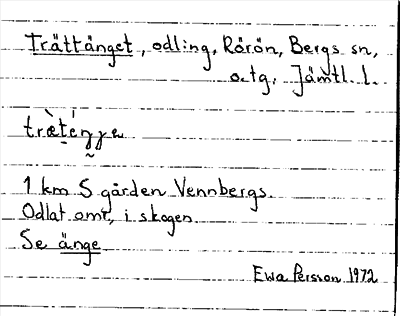 Trättänget, odling, Rörön, Bergs sn,
o.tg. Jämtl. l.
1 km S gården Vennbergs.
Odlat omr, i skogen.
Se änge
Ewa Persson 1972